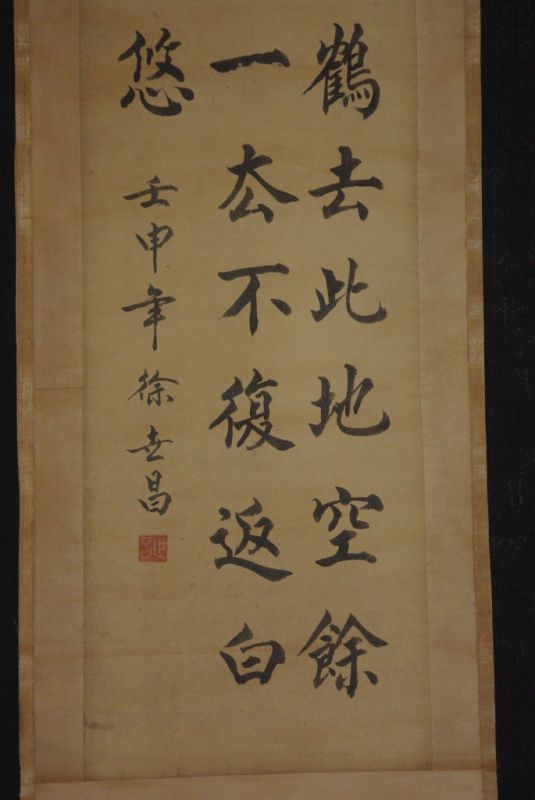 鶴去此地空餘
一去不復返白
悠
壬申年徐世昌
世昌